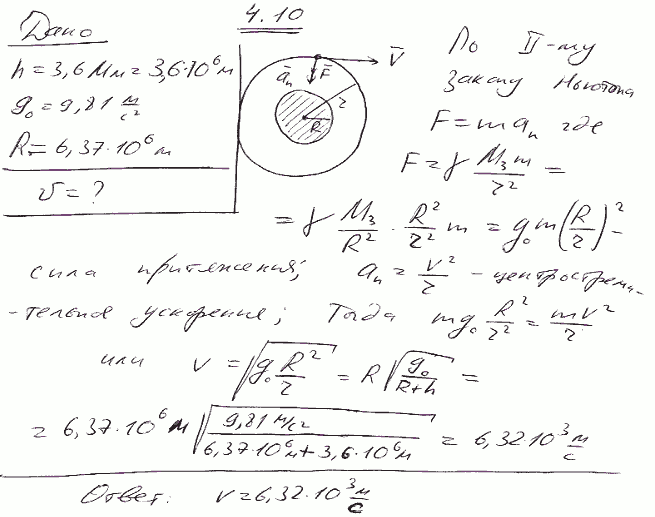 4.10
Дано
h = 3,6 Мм = 3,6·10⁶ м
g₀ = 9,81 м/с²
R = 6,37·10⁶ м
v = ?
V̄
āₙ F̄
r
R
По II-му
закону Ньютона
F = maₙ где
F = γ M₃m/r² =
= γ M₃/R² · R²/r² m = g₀m(R/r)² -
сила притяжения; aₙ = V²/r - центростреми-
-тельное ускорение; Тогда mg₀ R²/r² = mV²/r
или V = √(g₀ R²/r) = R√(g₀/(R+h)) =
= 6,37·10⁶ м √(9,81 м/с² / (6,37·10⁶м + 3,6·10⁶м)) = 6,32·10³ м/с
Ответ: V = 6,32·10³ м/с